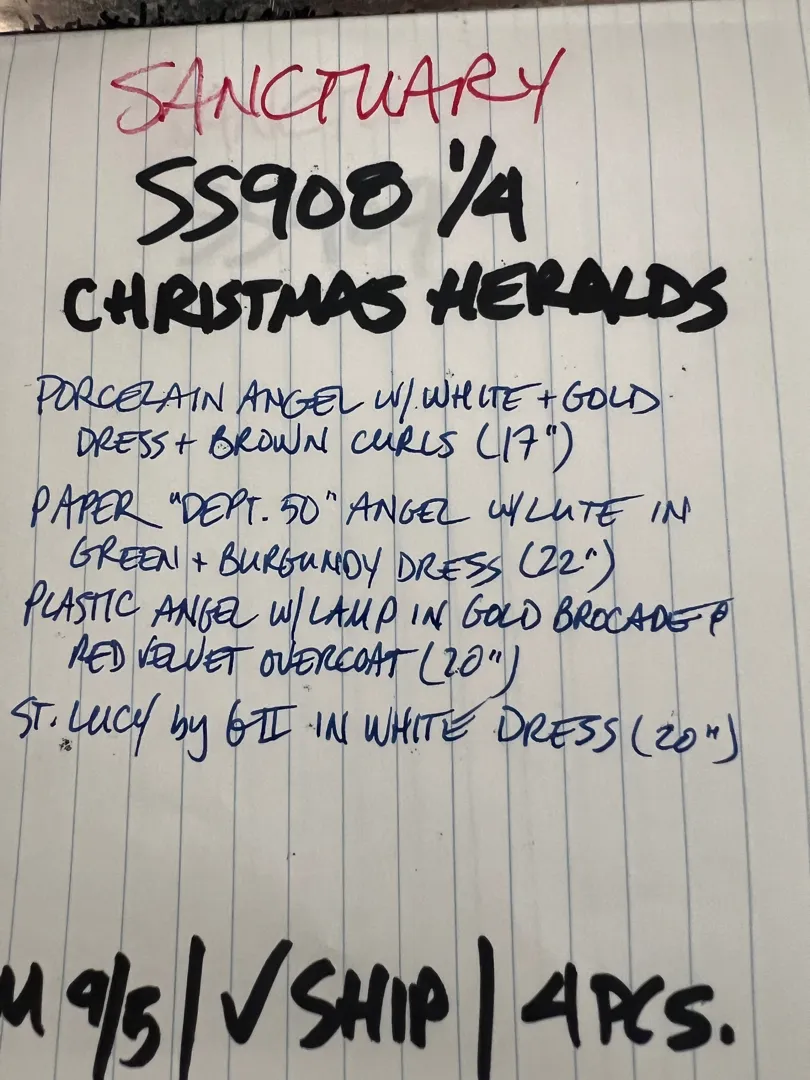 SANCTUARY
SS908 1/4
CHRISTMAS HERALDS
PORCELAIN ANGEL W/ WHITE + GOLD
DRESS + BROWN CURLS (17")
PAPER "DEPT. 50" ANGEL W/ LUTE IN
GREEN + BURGUNDY DRESS (22")
PLASTIC ANGEL W/ LAMP IN GOLD BROCADE &
RED VELVET OVERCOAT (20")
ST. LUCY by GII IN WHITE DRESS (20")
M 9/5 | √ SHIP | 4 PCS.